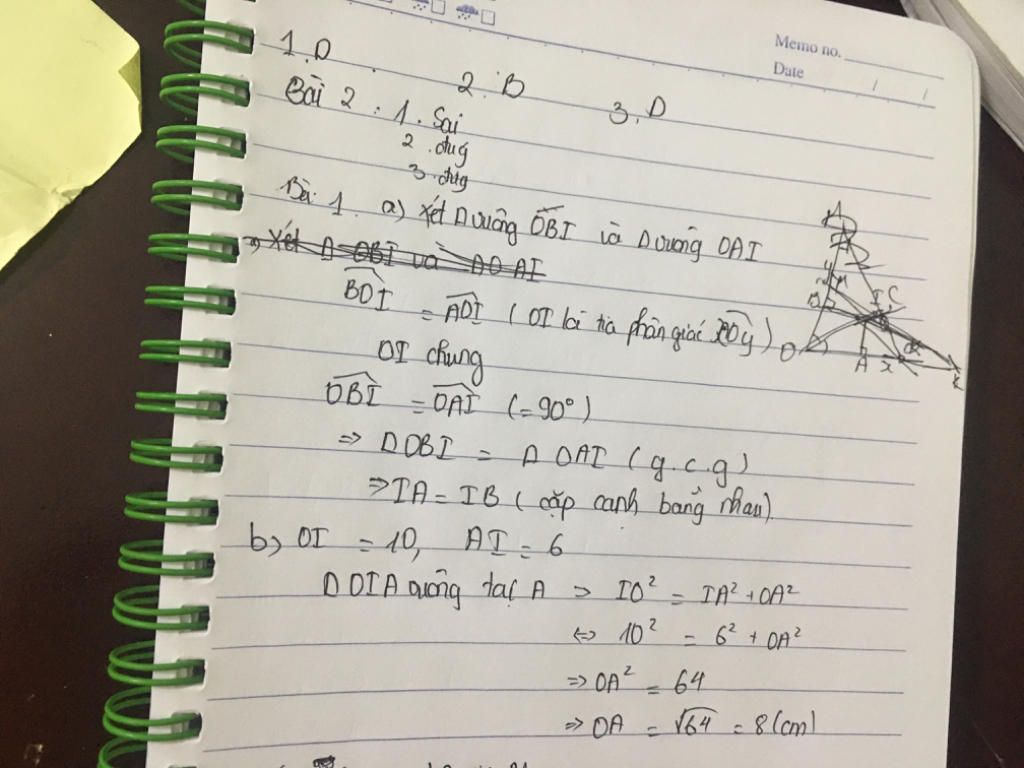 Memo no.
Date / /
1. D 2. B 3. D
Bài 2 : 1. Sai
2. đug
3. đug
Bài 1. a) Xét Δ vuông OBI và Δ vuông OAI
a) Xét Δ OBI và Δ OAI
BOI = AOI ( OI là tia phân giác xOy )
OI chung
OBI = OAI (= 90°)
⇒ Δ OBI = Δ OAI ( g.c.g )
⇒ IA = IB ( cặp cạnh bằng nhau)
b) OI = 10, AI = 6
Δ OIA vuông tại A ⇒ IO² = IA² + OA²
⇔ 10² = 6² + OA²
⇒ OA² = 64
⇒ OA = √64 = 8 (cm)